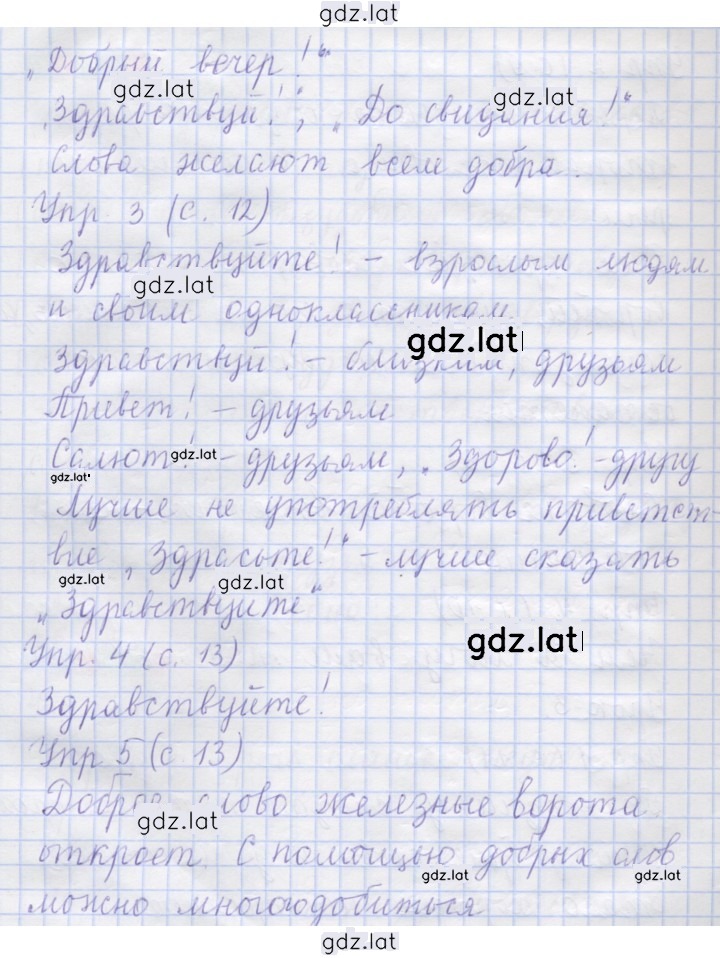 gdz.lat
„Добрый вечер!“
gdz.lat gdz.lat
„Здравствуй!“, „До свидания!“
Слова желают всем добра.
Упр. 3 (с. 12)
Здравствуйте! – взрослым людям
gdz.lat
и своим одноклассникам.
gdz.lat
Здравствуй! – близким, друзьям
Привет! – друзьям
Салют! – друзьям, „Здорово! – другу
gdz.lat
gdz.lat
Лучше не употреблять приветст-
вие „Здрасьте!“ – лучше сказать
gdz.lat gdz.lat
„Здравствуйте“
gdz.lat
Упр. 4 (с. 13)
Здравствуйте!
Упр 5 (с 13)
Доброе слово железные ворота
gdz.lat
откроет. С помощью добрых слов
gdz.lat gdz.lat
можно многого добиться
gdz.lat